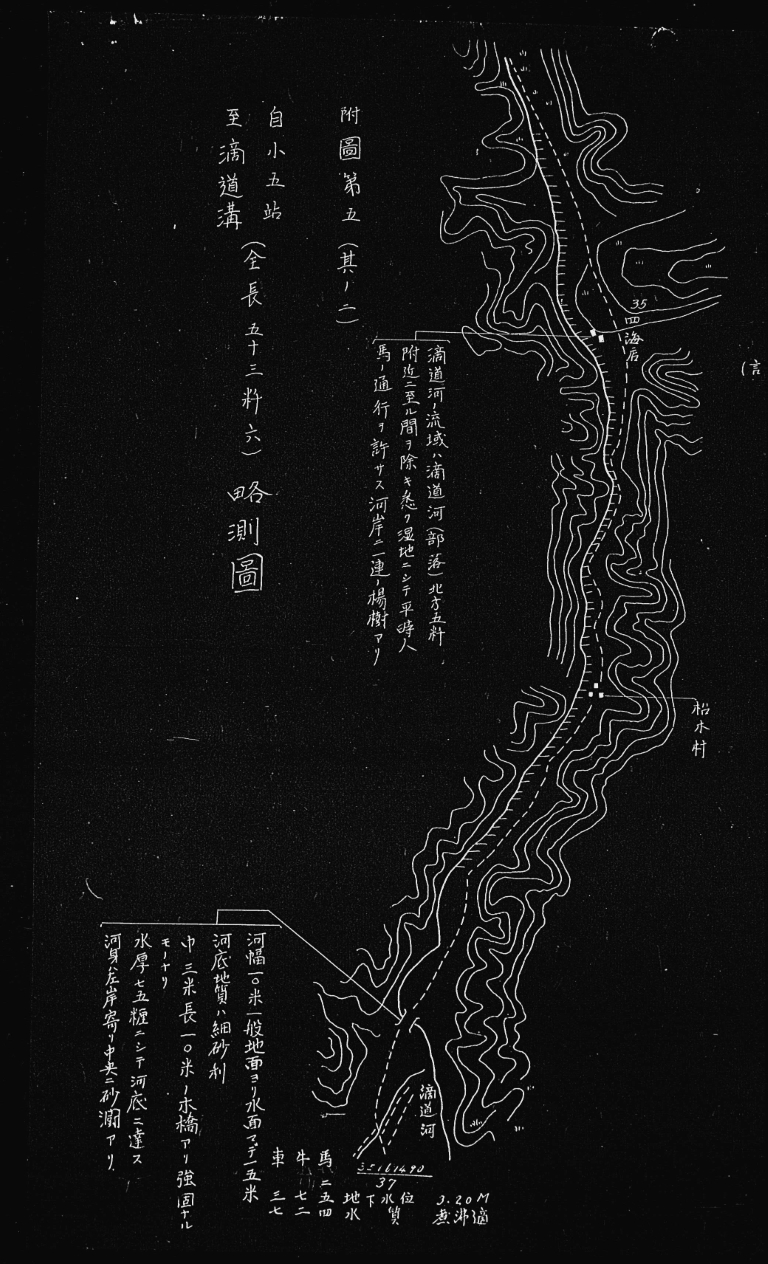 附圖第五（其ノ二）
自小五站
至滴道溝
（全長五十三粁六）略測圖
滴道河ノ流域ハ滴道河（部落）北方五粁
附近ニ至ル間ヲ除キ悉ク湿地ニシテ平時人
馬ノ通行ヲ許サス河岸ニ一連ノ楊樹アリ
35
四海店
柗木村
河幅一〇米一般地面ヨリ水面マデ一五米
河底地質ハ細砂利
巾三米長一〇米ノ木橋アリ強固ナル
モノナリ
水厚七五糎ニシテ河底ニ達ス
河身ハ左岸寄リ中央ニ砂洲アリ
滴道河
37
馬 二五四
牛 七二
車 三七
地下水
水位 3.20M
水質 煮沸適